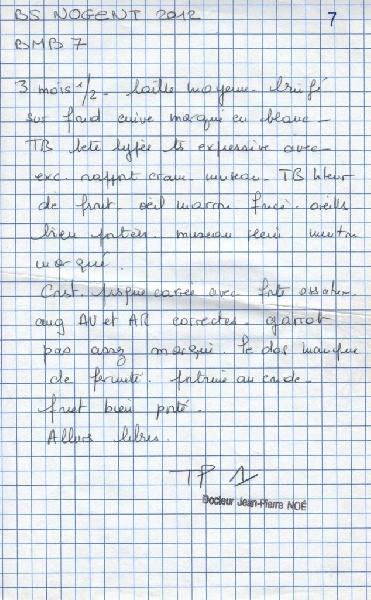 BS NOGENT 2012
7
BMB 7
3 mois 1/2 - taille moyenne - bringé
sur fond cuivé marqué en blanc -
TB tete typée ts expressive avec
exc. rapport crane. museau. TB
de front oeil marron foncé. oreilles
bien portées. museau menton
marqué.
Const. presque carrée avec forte ossature
ang AV et AR correctes garrot
pas assez marqué. le dos manque
de fermeté. poitrine au coude -
fouet bien porté.
Allures libres.
TP 1
Docteur Jean-Pierre NOÉ